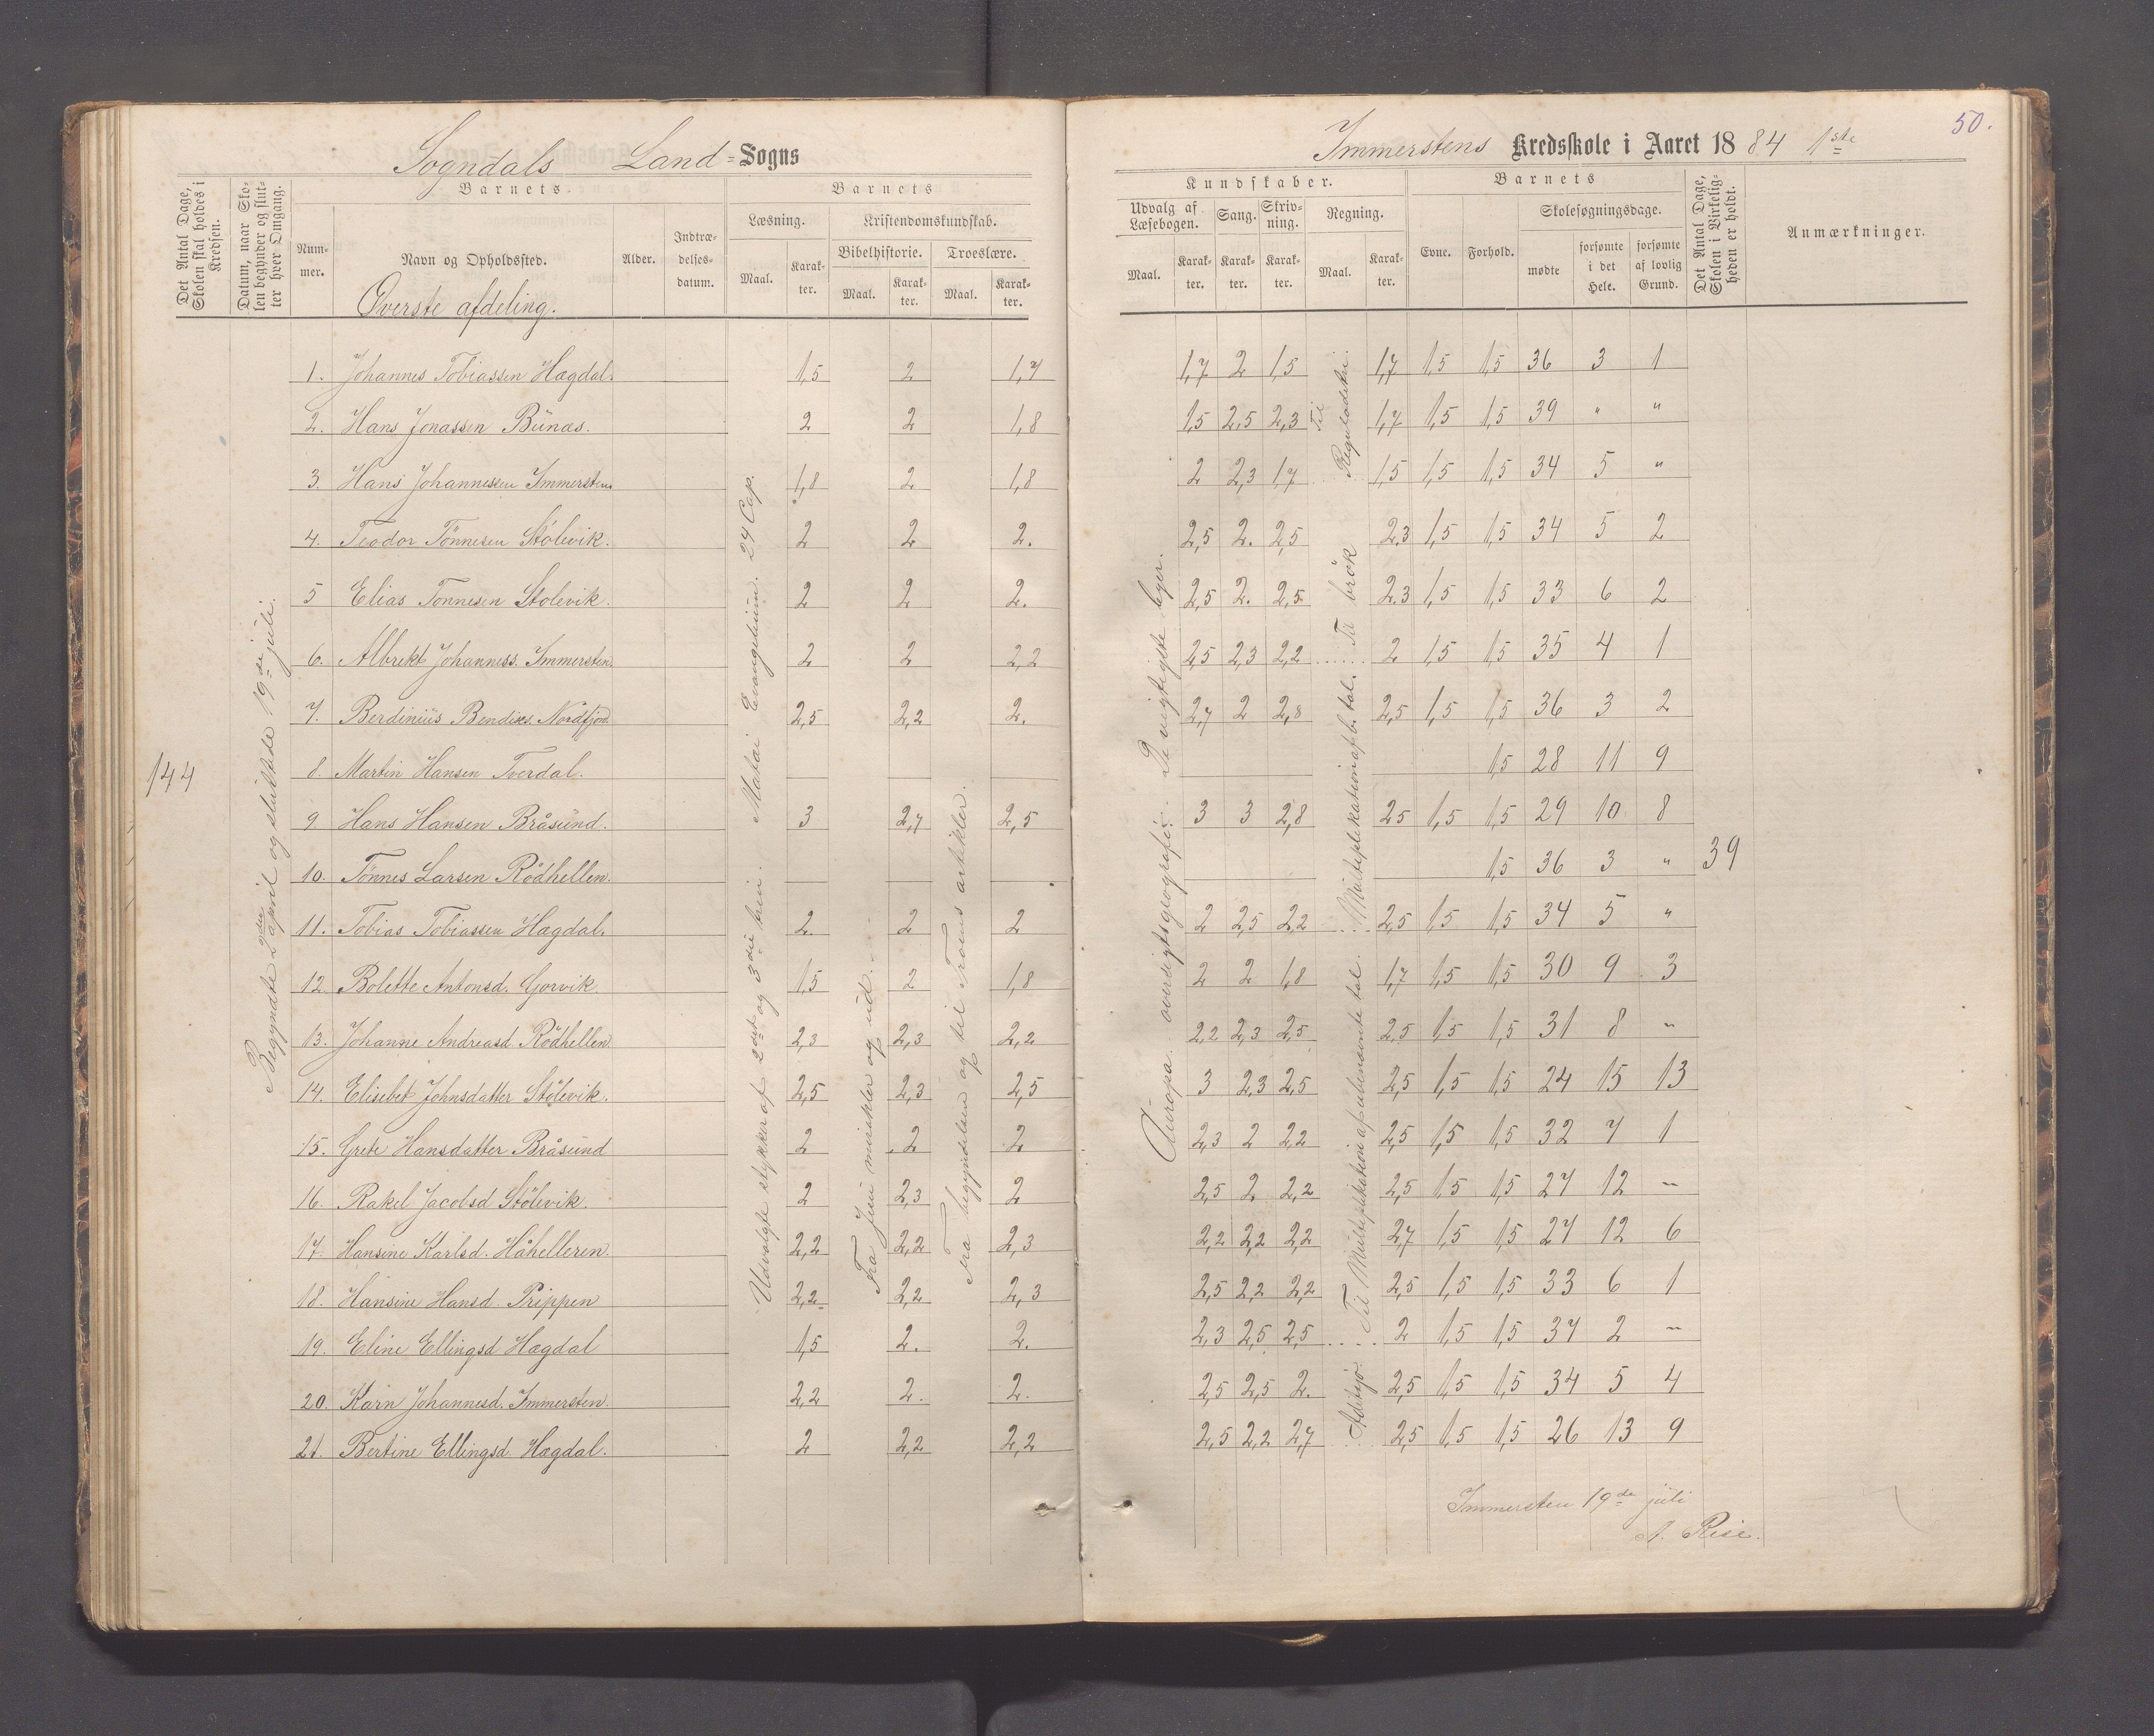 50.
Sogndals Land = Sogns
Immerstens Kredsskole i Aaret 1884 1ste
Det Antal Dage, Skolen skal holdes i Kredsen.
Datum, naar Skolen begynder og slutter hver Omgang.
Barnets
Nummer.
Navn og Opholdssted.
Alder.
Indtrædelsesdatum.
Barnets
Læsning.
Maal.
Karakter.
Kristendomskundskab.
Bibelhistorie.
Maal.
Karakter.
Troeslære.
Maal.
Karakter.
Kundskaber.
Udvalg af Læsebogen.
Maal.
Karakter.
Sang.
Karakter.
Skrivning.
Karakter.
Regning.
Maal.
Karakter.
Barnets
Evne.
Forhold.
Skolesøgningsdage.
mødte
forsømte i det Hele.
forsømte af lovlig Grund.
Det Antal Dage, Skolen i Virkeligheden er holdt.
Anmærkninger.
Øverste afdeling.
144
Begyndte 2den april og sluttede 19de juli.
Udvalgte stykker af 2det og 3die trin. Matæi Evangelium. 24 Cap.
Fra Jesu mirakler og ud.
Fra begyndelsen og til Troens artikler.
Europa. oversigtsgeografi. De vigtigste byer.
Til Reguladetri.
Til brøk
Multiplikation af b. tal.
Til Multiplikation af ubenævnte tal.
39
1. Johannes Tobiassen Hægdal. 1,5 2 1,7 1,7 2 1,5 1,7 1,5 1,5 36 3 1
2. Hans Jonassen Bünæs. 2 2 1,8 1,5 2,5 2,3 1,7 1,5 1,5 39 " "
3. Hans Johannessen Immersten 1,8 2 1,8 2 2,3 1,7 1,5 1,5 1,5 34 5 "
4. Teodor Tönnesen Stölevik. 2 2 2. 2,5 2. 2,5 2.3 1,5 1,5 34 5 2
5 Elias Tönnesen Stölevik. 2 2 2. 2,5 2. 2,5 2.3 1,5 1,5 33 6 2
6. Albrekt Johanness. Immersten. 2 2 2,2 2,5 2,3 2,2 2 1,5 1,5 35 4 1
7. Berdiniüs Bendiks. Nordfjord 2,5 2,2 2. 2,7 2 2,8 2,5 1,5 1,5 36 3 2
8. Martin Hansen Tverdal. 1,5 28 11 9
9. Hans Hansen Bråsünd. 3 2,7 2,5 3 3 2,8 2,5 1,5 1,5 29 10 8
10. Tönnes Larsen Rödhellen. 1,5 36 3 "
11. Tobias Tobiassen Hægdal. 2. 2 2 2 2,5 2,2 2,5 1,5 1,5 34 5 "
12. Bolette Antonsd. Gorvik. 1,5 2 1,8 2 2 1,8 1,7 1,5 1,5 30 9 3
13. Johanne Andreasd Rödhellen 2,3 2,3 2,2 2,2 2,3 2,5 2,5 1,5 1,5 31 8 "
14. Elisebet Johnsdatter Stölevik. 2,5 2,3 2,5 3 2,3 2,5 2,5 1,5 1,5 24 15 13
15. Grete Hansdatter Bråsünd 2 2 2 2,3 2 2,2 2,5 1,5 1,5 32 7 1
16. Rakel Jacobsd Stölevik. 2 2,3 2 2,5 2 2,2 2,5 1,5 1,5 27 12 "
17. Hansine Karlsd. Håhelleren. 2,2 2,2 2,3 2,2 2,2 2,2 2,7 1,5 1,5 27 12 6
18. Hansine Hansd. Prippen 2,2 2,2 2,3 2,5 2,2 2,2 2,5 1,5 1,5 33 6 1
19. Eline Ellingsd Hægdal 1,5 2. 2. 2,3 2,5 2,5 2 1,5 1,5 37 2 "
20. Karn Johannesd. Immersten. 2,2 2. 2. 2,5 2,5 2. 2,5 1,5 1,5 34 5 4
21. Bertine Ellingsd. Hægdal. 2 2,2 2,2 2,5 2,2 2,7 2,5 1,5 1,5 26 13 9
Immersten 19de jüli
A. Rise.